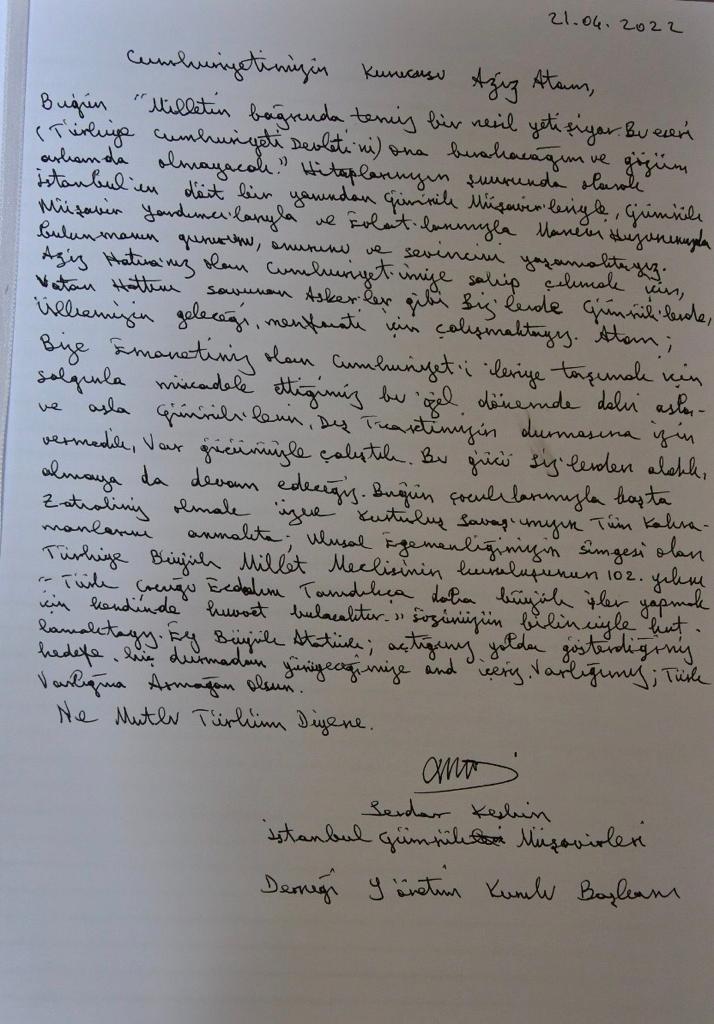 21.04.2022
Cumhuriyetimizin Kurucusu Aziz Atam,
Bugün "Milletin bağrında temiz bir nesil yetişiyor. Bu eseri
(Türkiye Cumhuriyeti Devleti'ni) ona bırakacağım ve gözüm
arkamda olmayacak." Hitaplarınızın şuurunda olarak
İstanbul'un dört bir yanından Gümrük Müşavirleriyle, Gümrük
Müşavir Yardımcılarıyla ve Evlatlarımızla Manevi Huzurunuzda
bulunmanın gururunu, onurunu ve sevincini yaşamaktayız.
Aziz Hatıranız olan Cumhuriyetimize sahip çıkmak için,
Vatan Hattını savunan Askerler gibi Bizlerde Gümrüklerde,
Ülkemizin geleceği, menfaati için çalışmaktayız. Atam;
Bize Emanetiniz olan Cumhuriyet'i ileriye taşımak için
salgınla mücadele ettiğimiz bu özel dönemde dahi asla
ve asla Gümrüklerin, Dış Ticaretimizin durmasına izin
vermedik, Var gücümüyle çalıştık. Bu gücü Sizlerden aldık,
almaya da devam edeceğiz. Bugün çocuklarımızla başta
Zatıaliniz olmak üzere Kurtuluş Savaşımızın Tüm Kahra-
manlarını anmakta; Ulusal Egemenliğimizin simgesi olan
Türkiye Büyük Millet Meclisinin kuruluşunun 102. yılını
"Türk çocuğu Ecdadını Tanıdıkça daha büyük işler yapmak
için kendinde kuvvet bulacaktır." Sözünüzün bilinciyle kut-
lamaktayız. Ey Büyük Atatürk; açtığınız yolda gösterdiğiniz
hedefe hiç durmadan yürüyeceğimize and içeriz. Varlığımız; Türk
Varlığına Armağan olsun.
Ne Mutlu Türküm Diyene.
Serdar Keskin
İstanbul Gümrük Müşavirleri
Derneği Yönetim Kurulu Başkanı